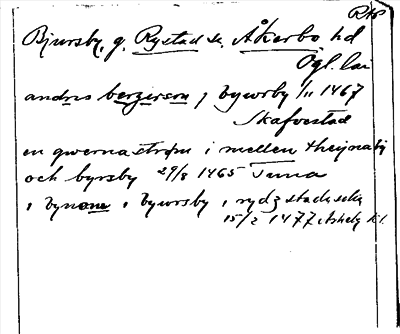 RAP
Bjursby, g. Rystad sn. Åkerbo hd
Ögl. län
andris bergirson j bywrby 1/11 1467
Skafvestad
en qwernastrøm i mellen theijnaby
och byrsby 29/8 1465 Tuna
i bynom i bywrsby i rydzstada sokn
15/2 1477 Askeby kl.